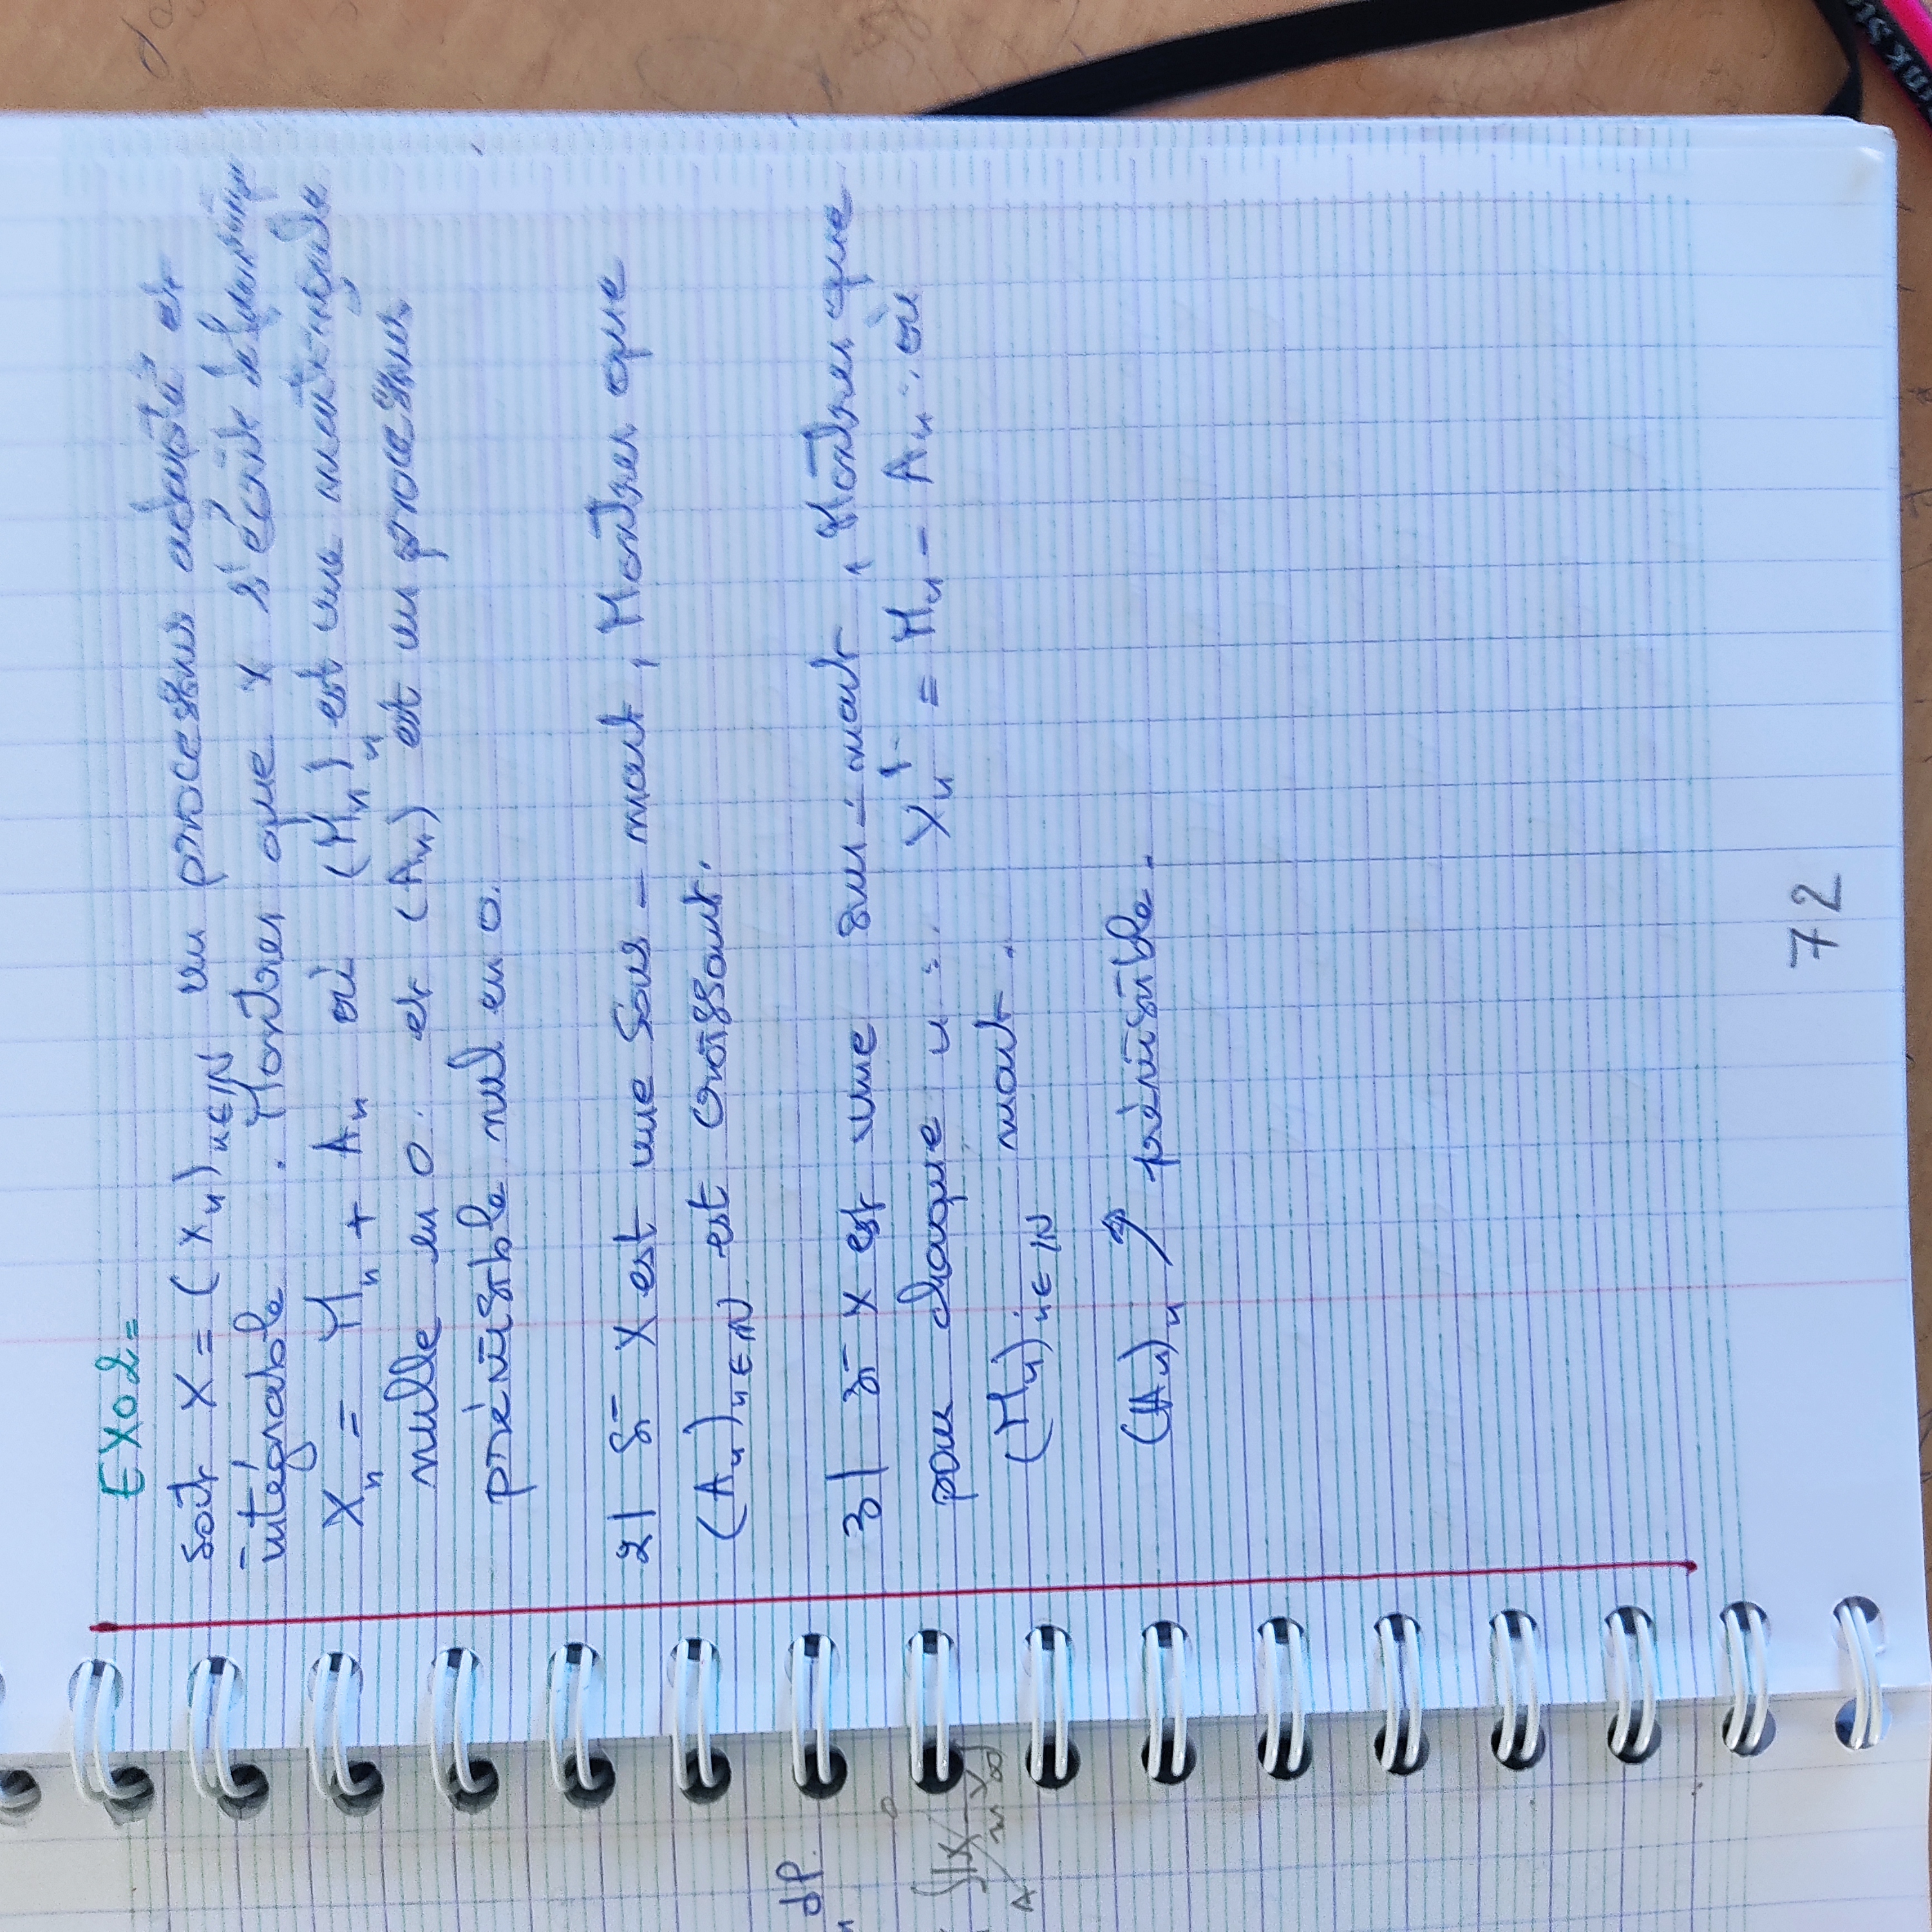 EXO2=
soit X = (Xn)n∈IN un processus adapté et
intégrable . Montrer que X s'écrit
Xn = Mn + An où (Mn)n est une martingale
nulle en 0. et (An) est un processus
prévisible nul en 0.
2| Si X est une Sous - mart, Montrer que
(An)n∈IN est croissant.
3| Si X est une sur - mart, Montrer que
pour chaque n : Xn = Mn - An où
(Mn)n∈IN mart.
(An)n ↗ prévisible.
72
dP.